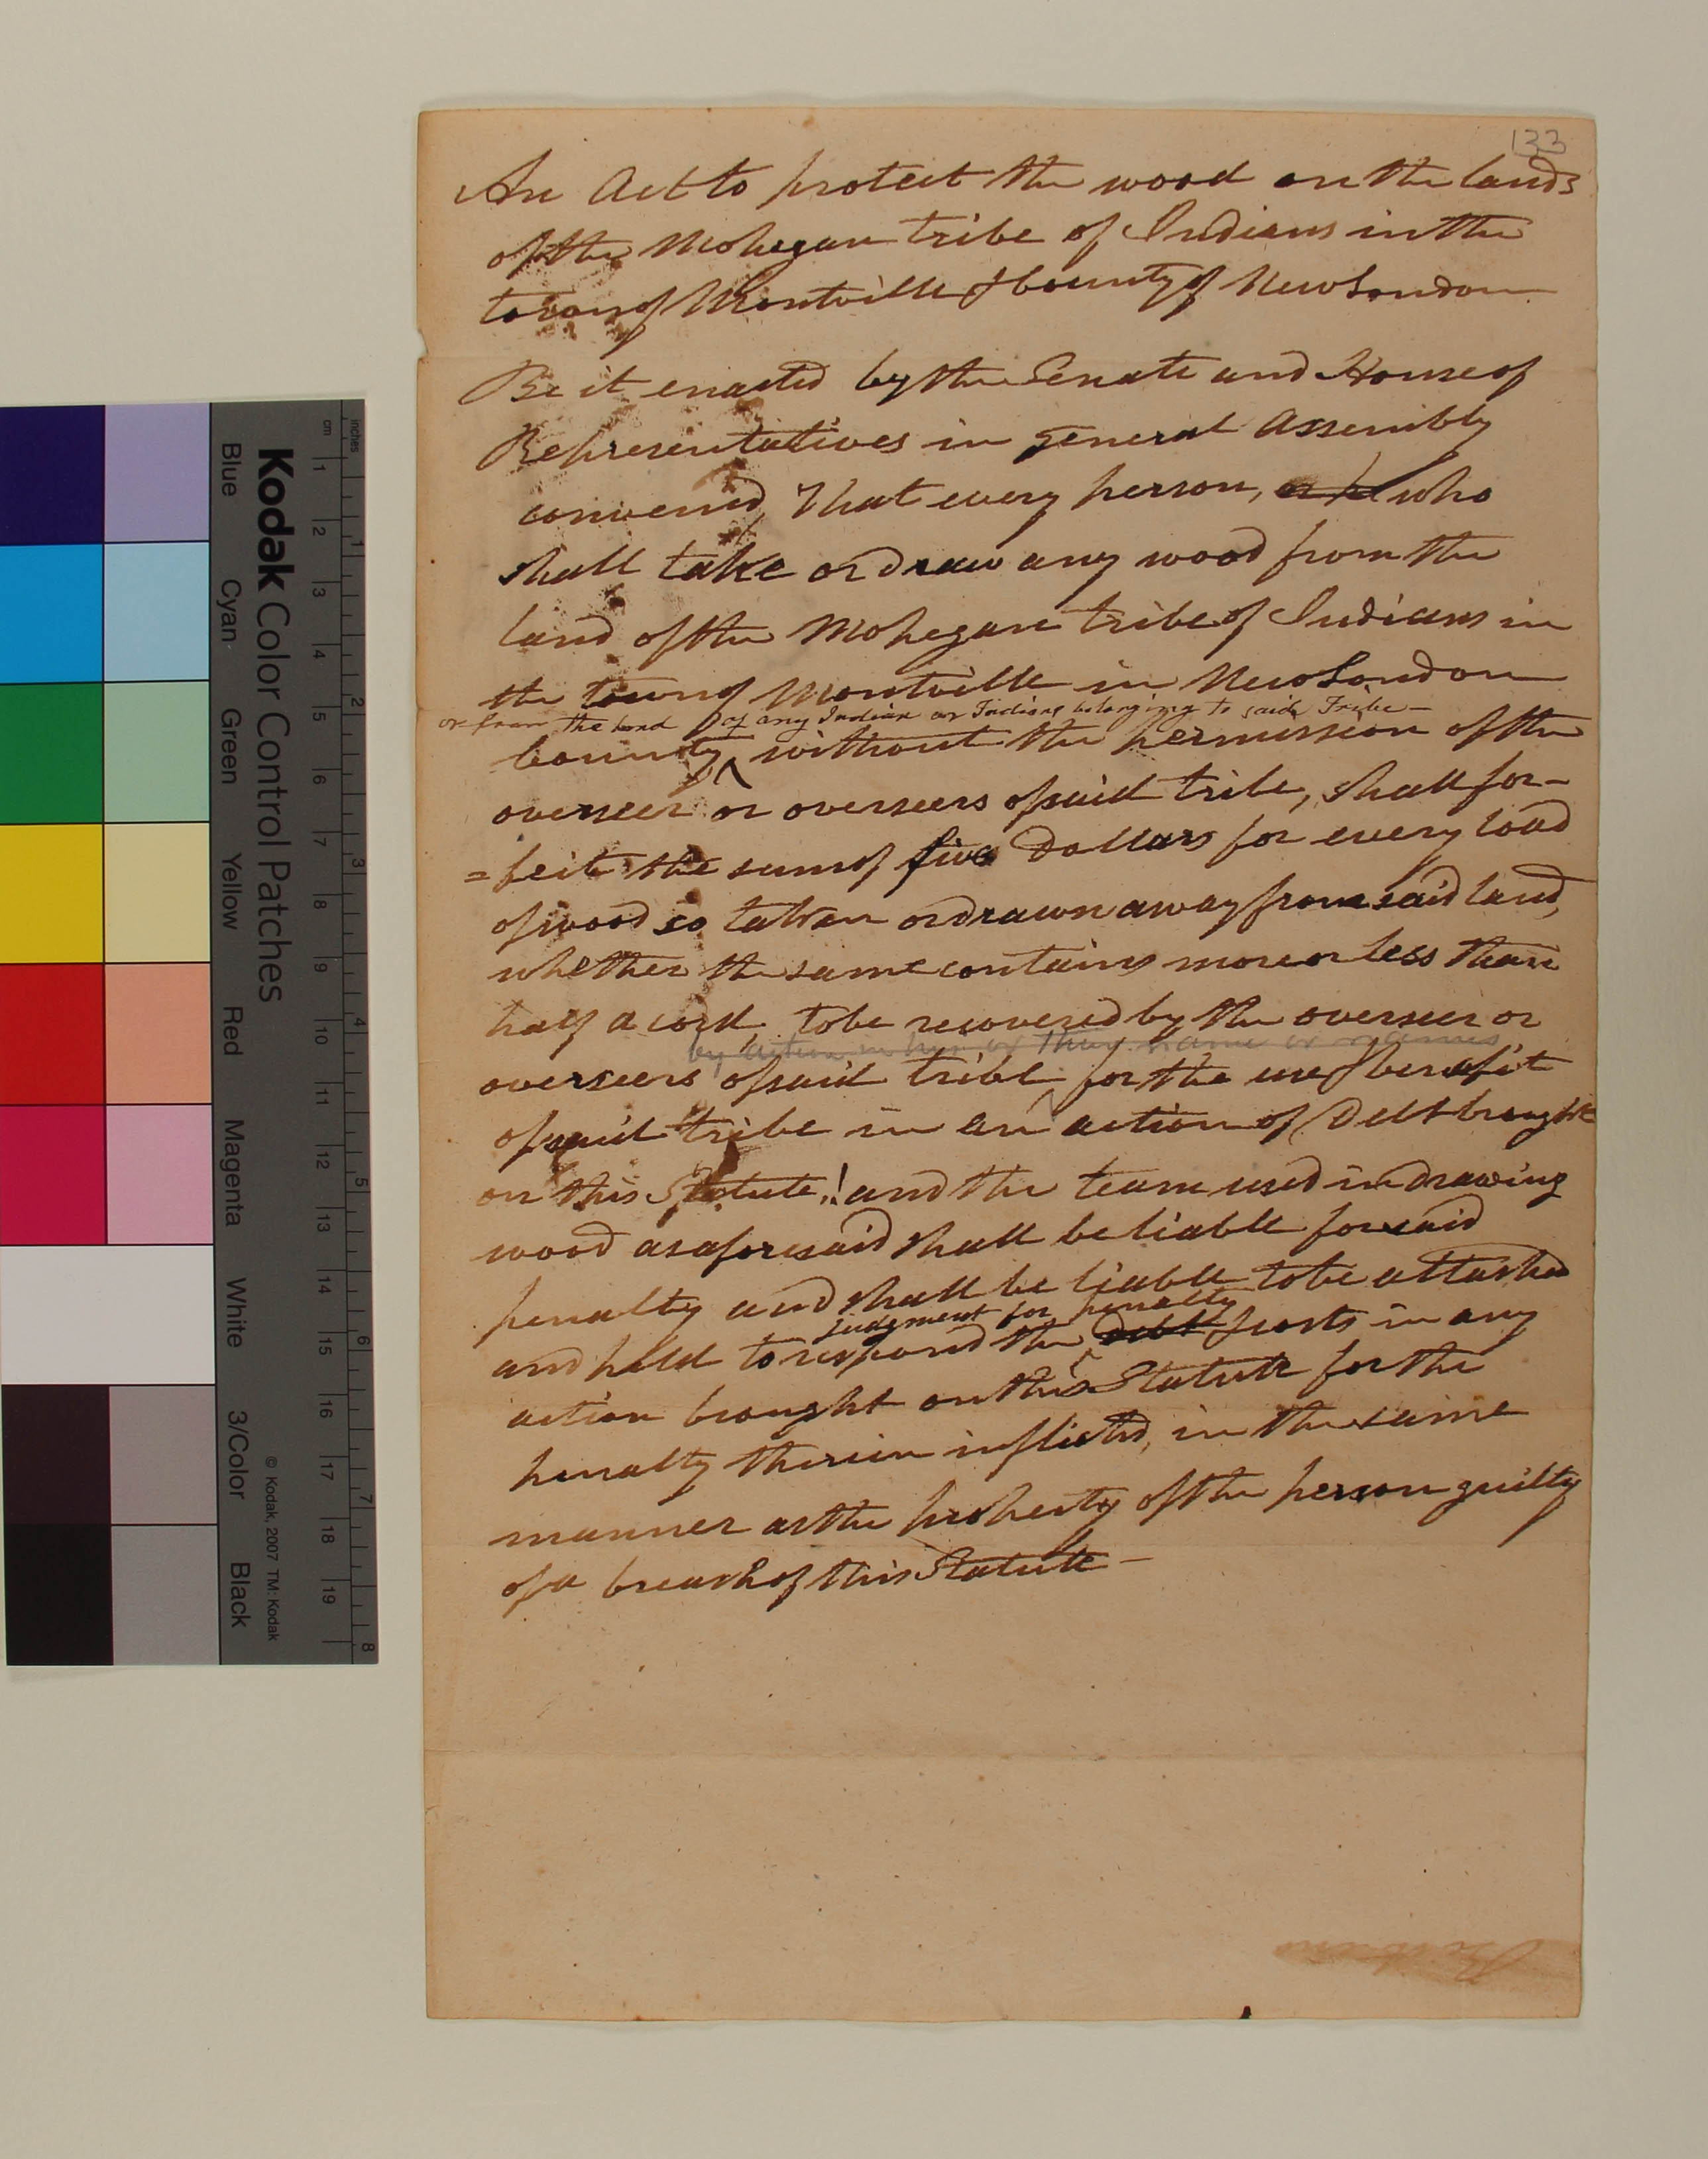 133
An Act to protect the wood on the lands
of the Mohegan tribe of Indians in the
town of Montville & County of New London
Be it enacted by the Senate and House of
Representatives in general Assembly
convened, That every person, who
shall take or draw any wood from the
land of the Mohegan tribe of Indians in
the town of Montville in New London
or from the land of any Indian or Indians belonging to said Tribe –
County, without the permission of the
overseer or overseers of said tribe, shall for-
=feit the sum of five Dollars for every load
of wood so taken or drawn away from said land,
whether the same contains more or less than
half a cord, to be recovered by the overseer or
by action in his or their name or names
overseers of said tribe, for the use & benefit
of said tribe in an action of Debt brought
on this Statute,! and the team used in drawing
wood as aforesaid shall be liable for said
penalty and shall be liable to be attached
judgment for penalty
and held to respond the debt & costs in any
action brought on this Statute for the
penalty therein inflicted, in the same
manner as the property of the person guilty
of a breach of this Statute –
Kodak Color Control Patches
© Kodak, 2007 TM: Kodak
Blue Cyan Green Yellow Red Magenta White 3/Color Black
inches 1 2 3 4 5 6 7 8
cm 1 2 3 4 5 6 7 8 9 10 11 12 13 14 15 16 17 18 19